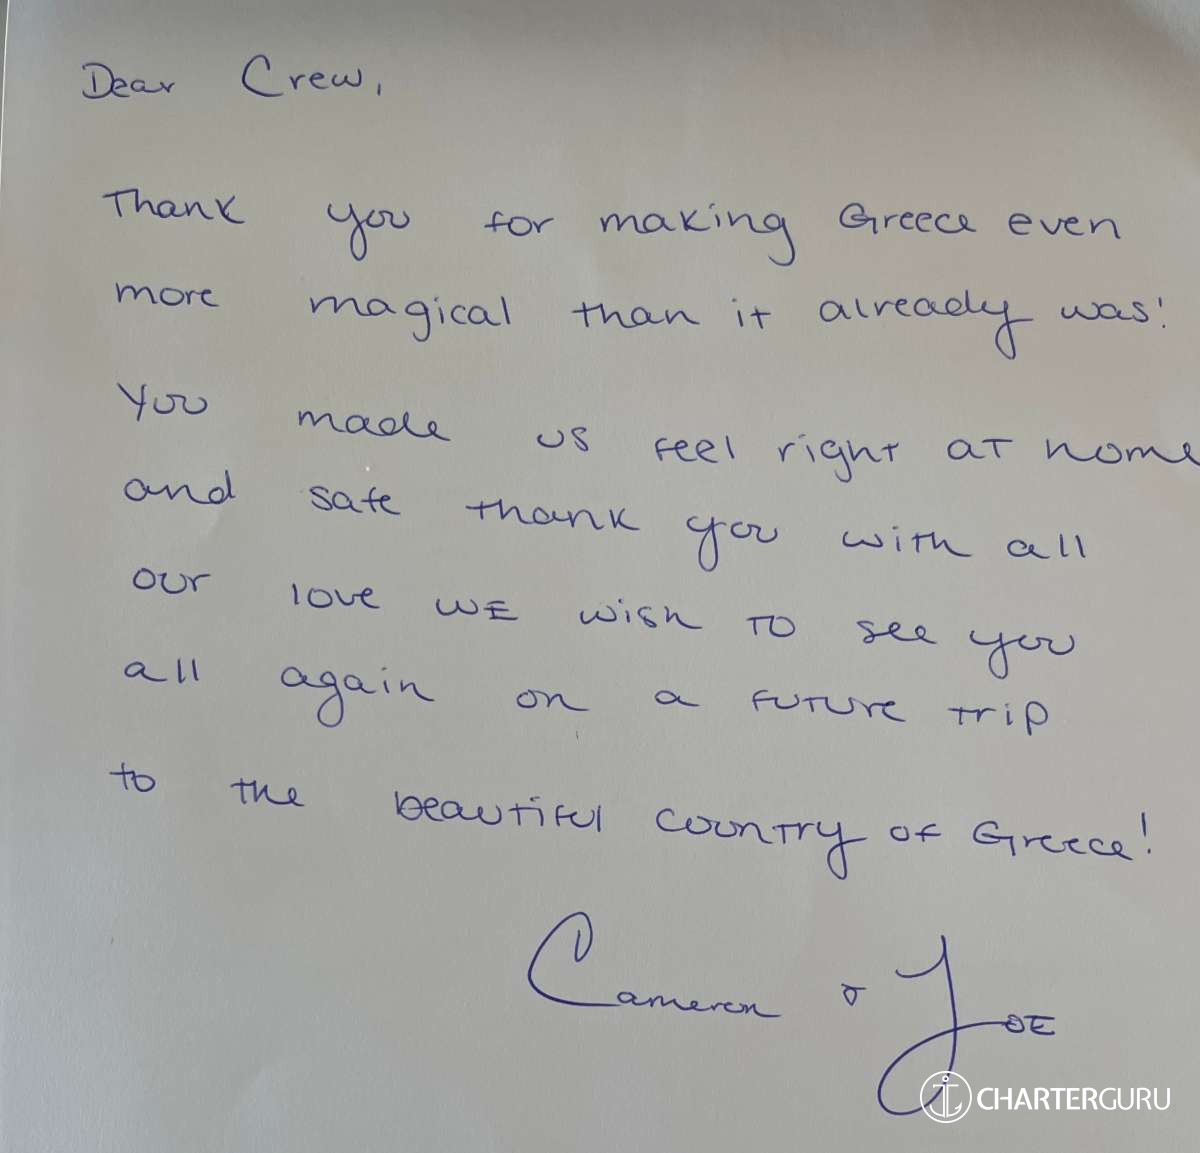 Dear Crew,
Thank you for making Greece even
more magical than it already was!
You made us feel right at home
and safe thank you with all
our love WE wish to see you
all again on a future trip
to the beautiful country of Greece!
Cameron & JOE
CHARTERGURU